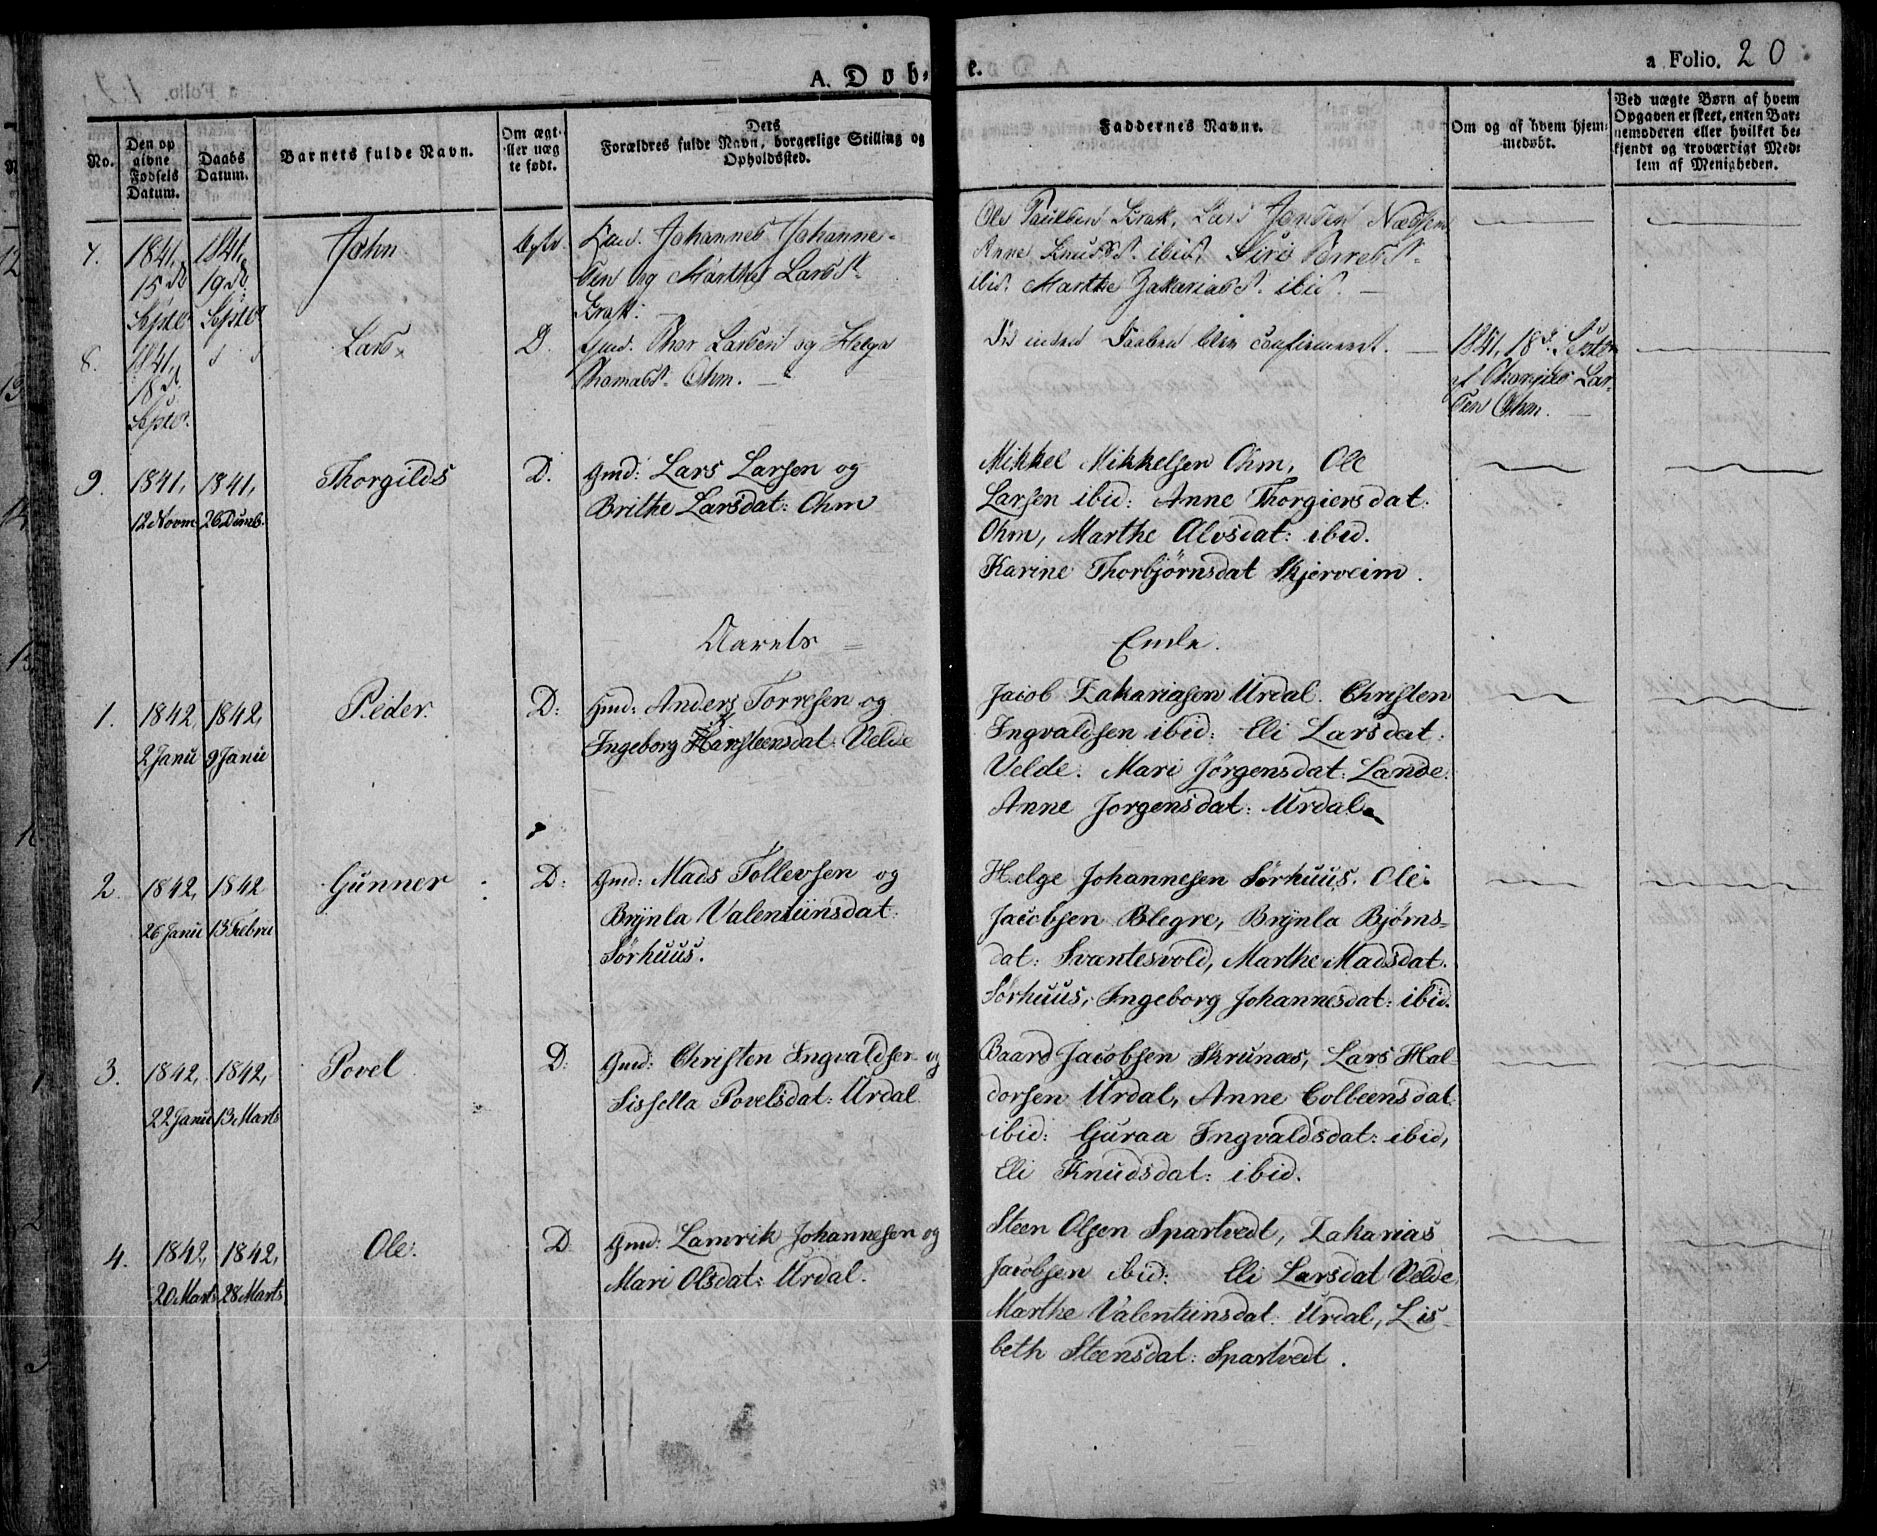 A. Døb-
e.
a Folio. 20
No.
Den op
givne
Fødsels
Datum.
Daabs
Datum.
Barnets fulde Navn.
Om ægt-
eller uæg
te født.
Dets
Forældres fulde Navn, borgerlige Stilling og
Opholdssted.
Faddernes Navne.
Om og af hvem hjem-
medøbt.
Ved uægte Børn af hvem
Opgaven er skeet, enten Bar-
nemoderen eller hvilket be-
kjendt og troværdigt Med-
lem af Menigheden.
7.
1841,
15 d.
Septbr
1841,
19 d.
Septbr
John
Ægte.
Johannes Johanne-
sen og Marthe Larsd.
Krak.
Ole Paulsen Krak, Lars Jensen
Anne Knudsd. ibid. Siri
ibid. Marthe Zakariasd. ibid.
8.
1841,
18 d.
Septbr.
Lars
D.
Gmd. Thor Larsen og Helge
Thomasd. Ohm.
1841, 18 d. Septbr
af Lar-
sen Ohm.
9.
1841,
12 Novm
1841,
26 Dcmb.
Thorgilds
D.
Gmd: Lars Larsen og
Brithe Larsdat: Ohm
Mikkel Mikkelsen Ohm, Ole
Larsen ibid: Anne Thorgiersdat:
Ohm, Marthe Alvsdat: ibid.
Karine Thorbjørnsdat Skjerveim.
Aarets
Ende.
1.
1842
2 Janu
1842,
9 Janu
Peder.
D:
Gmd: Anders Torresen og
Ingeborg Hansteensdat: Velde
Jacob Zakariasen Urdal. Christen
Ingvaldsen ibid: Eli Larsdat:
Velde. Mari Jørgensdat: Lande.
Anne Jorgensdat: Urdal
2.
1842,
26 Janu
1842
13 Febru
Gunner
D:
Gmd: Mads Tollevsen og
Brynla Valentinsdat:
Sørhuus.
Helge Johannesen Sørhuus. Ole
Jacobsen Blegre, Brynla Bjørns-
dat: Svantesvold, Marthe Madsdat.
Sørhuus, Ingeborg Johannesdat: ibid.
3.
1842,
22 Janu
1842,
13 Marts
Povel
D:
Gmd: Christen Ingvaldsen og
Sissella Povelsdat: Urdal
Baard Jacobsen Skrunæs, Lars Hal-
dorsen Urdal, Anne Colbeensdat
ibid: Guraa Ingvaldsdat: ibid,
Eli Knudsdat: ibid.
4.
1842,
20 Marts
1842,
28 Marts
Ole.
D
Gmd: Lamrik Johannesen og
Mari Olsdat: Urdal.
Steen Olsen Spartvedt, Zakarias
Jacobsen ibid: Eli Larsdat Velde
Marthe Valentinsdat: Urdal, Lis-
beth Steensdat: Spartvedt.